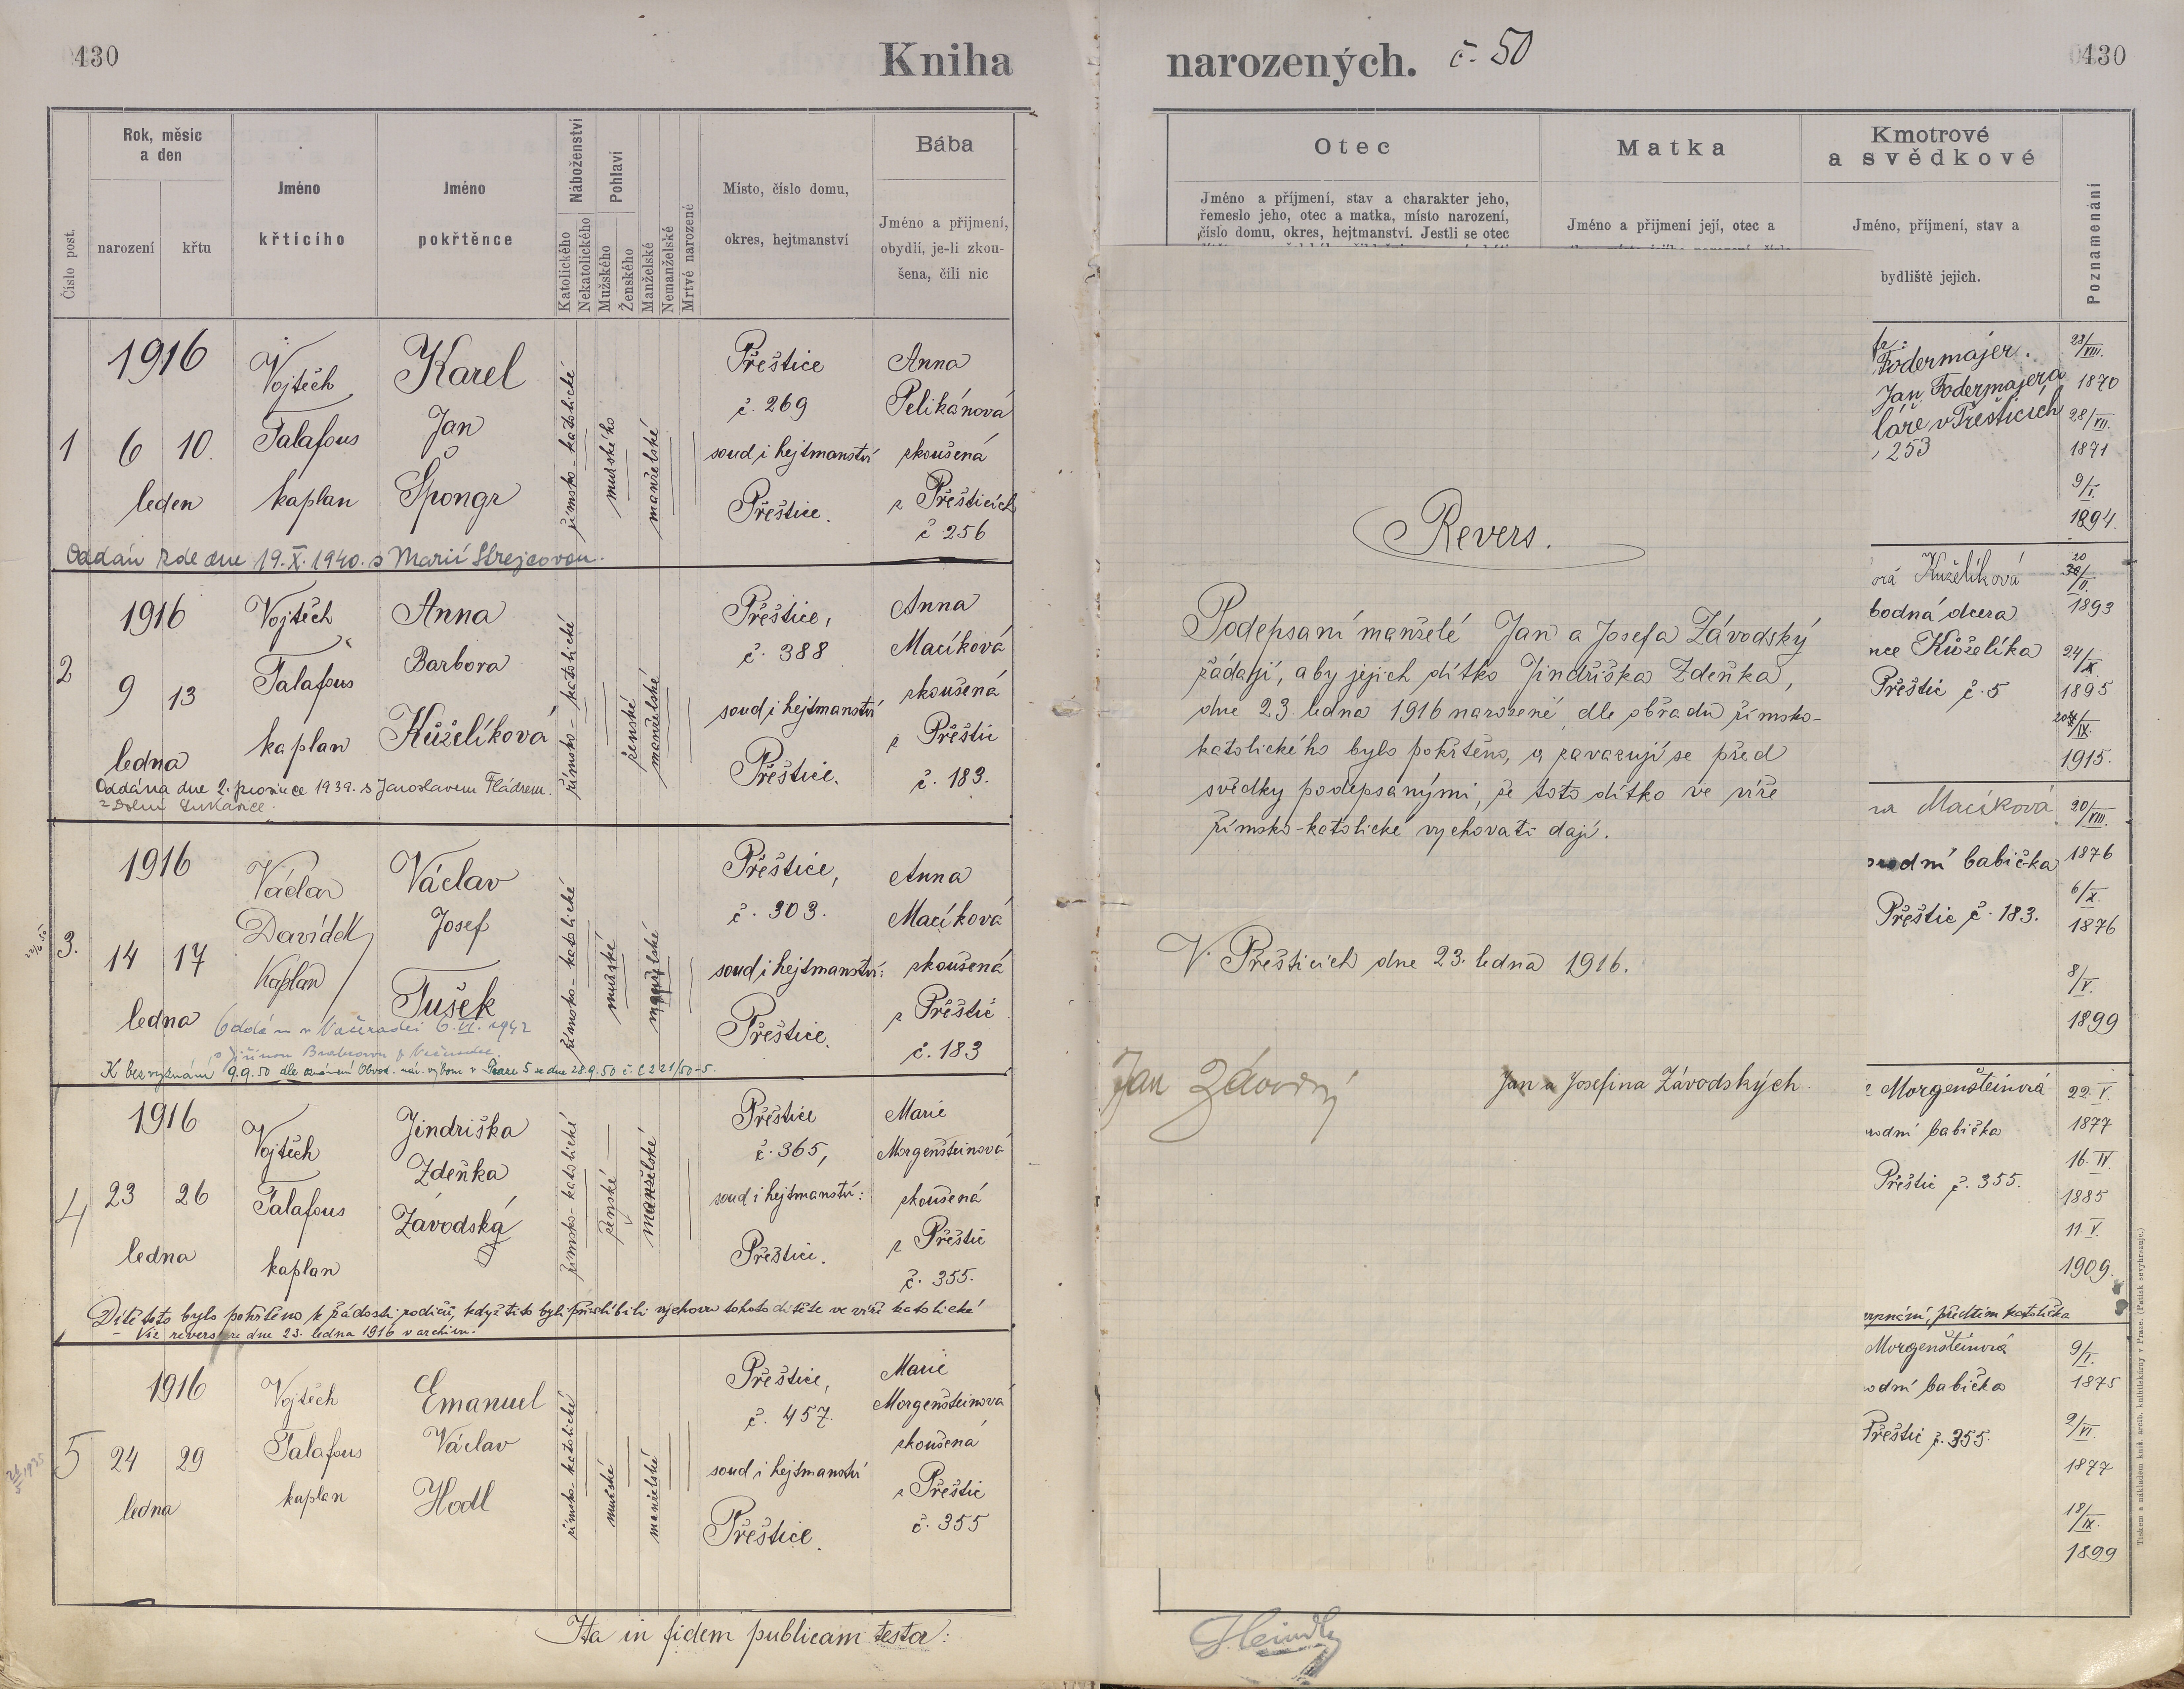 430
Kniha
narozených. č. 50
430
Číslo post.
Rok, měsíc
a den
narození
křtu
Jméno
křtícího
Jméno
pokřtěnce
Náboženství
Katolického
Nekatolického
Pohlaví
Mužského
Ženského
Manželské
Nemanželské
Mrtvé narozené
Místo, číslo domu,
okres, hejtmanství
Bába
Jméno a příjmení,
obydlí, je-li zkou-
šena, čili nic
Otec
Jméno a příjmení, stav a charakter jeho,
řemeslo jeho, otec a matka, místo narození,
číslo domu, okres, hejtmanství. Jestli se otec
Matka
Jméno a příjmení její, otec a
Kmotrové
a svědkové
Jméno, příjmení, stav a
bydliště jejich.
Poznamenání
1
1916
6 10.
leden
Vojtěch
Talafous
kaplan
Karel
Jan
Špongr
římsko-katolické
mužského
manželské
Přeštice
č. 269
soud i hejtmanství
Přeštice.
Anna
Pelikánová
zkoušená
z Přešticích
č 256
Oddán zde dne 19. X. 1940. s Marií Strejcovou.
Fodermajer.
Jan Fodermajera
láře v Přešticích
253
28/VIII.
1870
28/VII.
1871
9/I.
1894.
2
1916
9 13
ledna
Vojtěch
Talafous
kaplan
Anna
Barbora
Kůželíková
římsko-katolické
ženské
manželské
Přeštice,
č. 388
soud i hejtmanství
Přeštice.
Anna
Macíková
zkoušená
z Přeštic
č. 183.
Oddána dne 2. prosince 1939. s Jaroslavem Fládrem.
z Dolní Lukavice.
ová Kůželíková
bodná dcera
nce Kůželíka
Přeštic č. 5
20
30/II.
1893
24/X.
1895
/IX.
1915.
3.
1916
14 17
ledna
Václav
Davídek
Kaplan
Václav
Josef
Tušek
římsko-katolické
mužské
manželské
Přeštice,
č. 303.
soud i hejtmanství:
Přeštice.
Anna
Macíková
zkoušená
z Přeštic
č. 183
Oddán v 6. VI. 1942
K bezvyznání 9.9.50 dle oznámení Obvod. nár. výboru v Praze 5 ze dne 28.9.50 č. C 221/50-5.
na Macíková
rodní babička
Přeštic č. 183.
20/VIII.
1876
6/X.
1876
8/V.
1899
4
1916
23 26
ledna
Vojtěch
Talafous
kaplan
Jindřiška
Zdeňka
Závodská
římsko-katolické
ženské
manželské
Přeštice
č. 365,
soud i hejtmanství:
Přeštice.
Marie
Morgenšteinová
zkoušená
z Přeštic
č. 355.
Dítě toto bylo pokřtěno k žádosti rodičů, když tito byli přislíbili výchovu tohoto dítěte ve víře katolické
– Viz revers ze dne 23. ledna 1916 v archivu.
Morgenšteinová
rodní babička
Přeštic č. 355.
22. V.
1877
16. IV.
1885
11. V.
1909.
předtím katolička
5
1916
24 29
ledna
Vojtěch
Talafous
kaplan
Emanuel
Václav
Hodl
římsko-katolické
mužské
manželské
Přeštice,
č. 457.
soud i hejtmanství
Přeštice.
Marie
Morgenšteinová
zkoušená
z Přeštic
č. 355
Morgenšteinová
odní babička
Přeštic č. 355.
9/I.
1875
2/VI.
1877
18/IX.
1899
Revers.
Podepsaní manželé Jan a Josefa Závodský
žádají, aby jejich dítko Jindřiška Zdeňka,
dne 23. ledna 1916 narozené, dle obřadu římsko-
katolického bylo pokřtěno, a zavazují se před
svědky podepsanými, že toto dítko ve víře
římsko-katolické vychovati dají.
V Přešticích dne 23. ledna 1916.
Jan Závodný
Jan a Josefina Závodských.
Ita in fidem publicam testor: